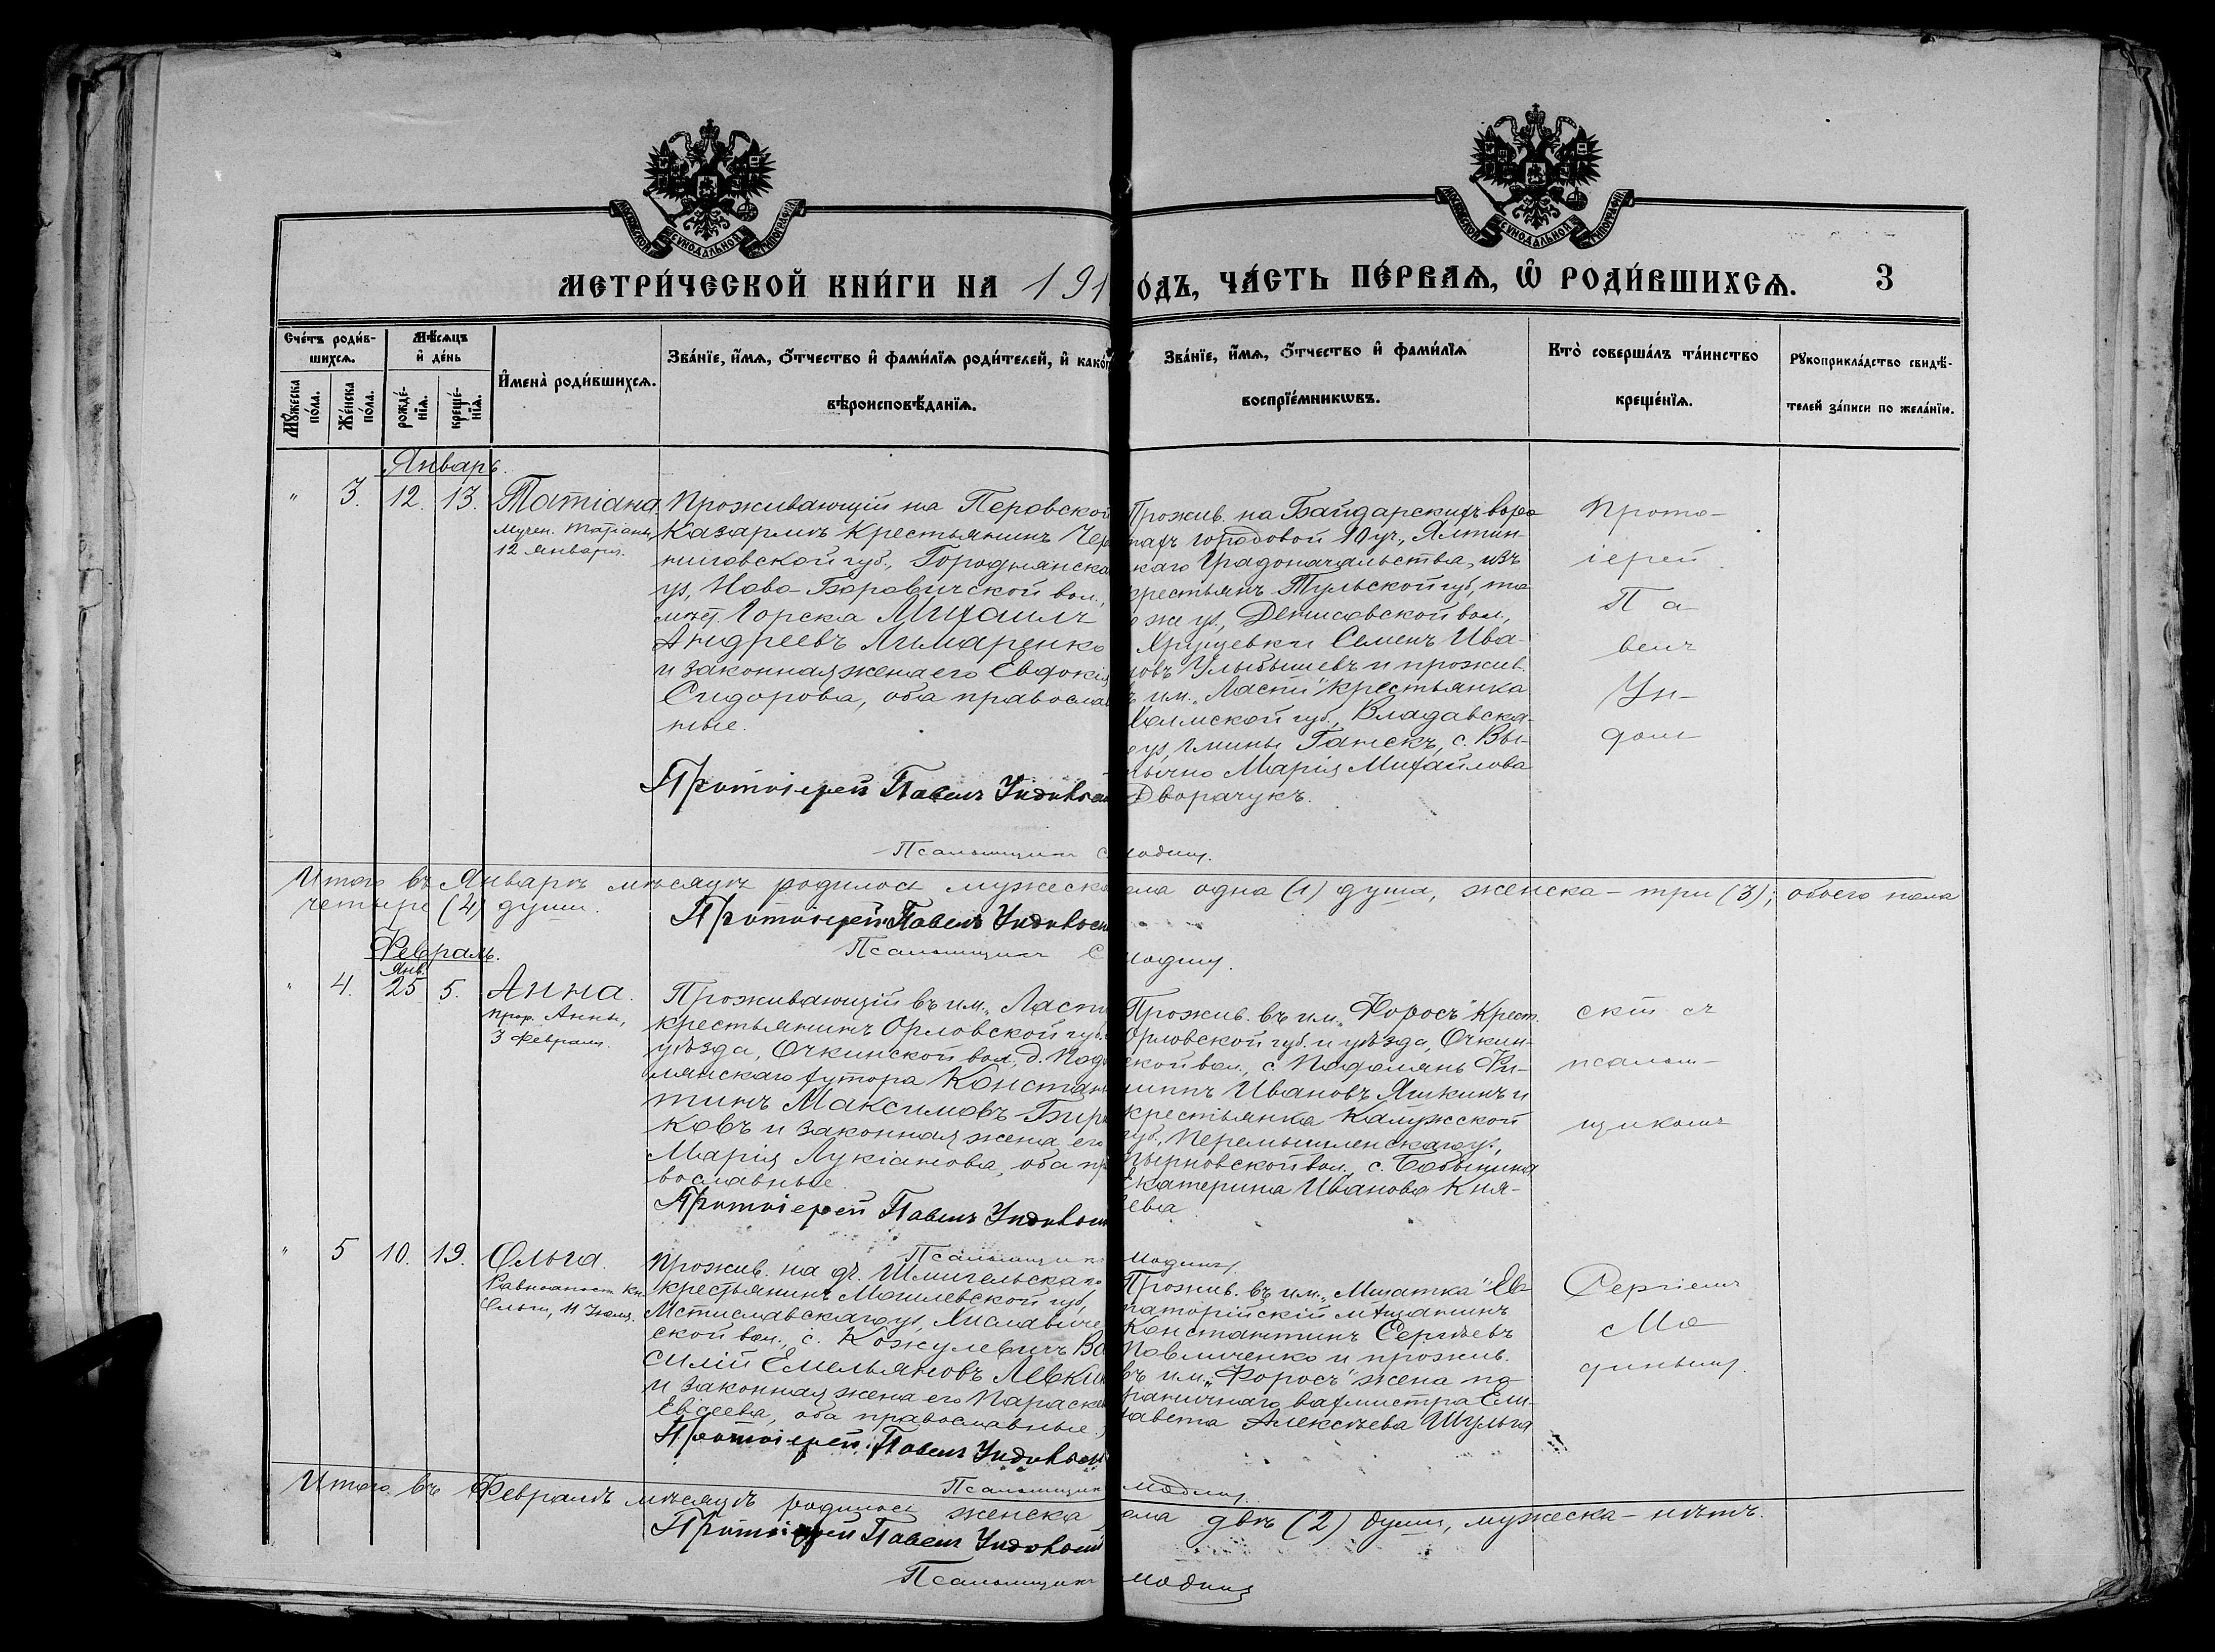 МОСКОВСКОЙ СѴНОДАЛЬНОЙ ТИПОГРАФІИ
МОСКОВСКОЙ СѴНОДАЛЬНОЙ ТИПОГРАФІИ
МЕТРИ́ЧЕСКОЙ КНИ́ГИ НА 191
О́ДЪ, ЧА́СТЬ ПЕ́РВАѦ, Ѡ҆ РОДИ́ВШИХСѦ. 3
Сче́тъ роди́в-
шихсѧ.
Мꙋ́жеска по́ла.
Же́нска по́ла.
Мѣ́сѧцъ
и҆ де́нь
рожде́-нїѧ.
креще́-нїѧ.
И҆мена̀ роди́вшихсѧ.
Зва́нїе, и҆́мѧ, ѻ҆́тчество и҆ фами́лїѧ роди́телей, и҆ како́г
вѣроисповѣ́данїѧ.
Зва́нїе, и҆́мѧ, ѻ҆́тчество и҆ фами́лїѧ
воспрїе́мникѡвъ.
Кто̀ соверша́лъ та́инство
креще́нїѧ.
Рꙋкоприкла́дство свидѣ́-
телей за́писи по жела́нїю.
Январь.
" 3. 12. 13. Татіана.
Мучен. Татіаны,
12 января.
Проживающій на Перовской
Казармѣ крестьянинъ Чер
ниговской губ., Городнянска
уѣ, Ново-Боровичской вол.,
мѣст. Горска Михаилъ
Андреевъ Лимаренко
и законная жена его Евдокія
Сидорова, оба православ
ные.
Протоіерей Павелъ Ундольск
Псаломщикъ С
Прожив. на Байдарскихъ воро
тахъ городовой 10 уч., Ялтин-
скаго Градоначальства, изъ
крестьянъ Тульской губ, то
го же уѣ., Денисовской вол.,
Хрущевки Семенъ Ива-
новъ Улыбышевъ и прожив.
въ им. „Ласпи" крестьянка
Холмской губ., Владавска-
го уѣ, гмины Ганскъ, с. Вы-
Марія Михайлова
Дворачукъ.
модину.
Прото-
іерей
Па-
велъ
Ун-
дол-
Итого въ Январѣ мѣсяцѣ родилось мужеска
пола одна (1) душа, женска - три (3); обоего пола
четыре (4) души.
Протоіерей Павелъ Ундольск
Псаломщикъ С
модину.
Февраль.
Янв.
" 4. 25 5. Анна.
прор. Анны,
3 февраля.
Проживающій въ им. „Ласпи
крестьянинъ Орловской губ.
уѣзда, Очкинской вол., д. Подо
млянскаго хутора Констан
тинъ Максимовъ Бирю
ковъ и законная жена его
Марія Лукіанова, оба пр
вославные.
Протоіерей Павелъ Ундольск
Прожив. въ им. „Форосъ" крест.
Орловской губ. и уѣзда, Очкин-
ской вол., с. Подомлянь Фи-
липпъ Ивановъ Яшкинъ и
крестьянка Калужской
губ., Перемышленскаго уѣ,
вол., с. Бабынина
Екатерина Иванова Кня-
зева
скій съ
псалом-
щикомъ
" 5 10. 19. Ольга.
Равноапост. Кн.
Ольги, 11 Іюля.
Псаломщикъ
Прожив. на дч. Шмигельскаго
крестьянинъ Могилевской губ,
Мстиславскаго уѣ, Хиславиче
ской вол., с. Кожулевичъ Ва
силій Емельяновъ Левки
и законная жена его Параскев
Евсеева, оба православные.
Протоіерей Павелъ Ундольск
Псаломщикъ
модину.
Прожив. въ им. „Мшатка" Ев-
паторійскій мѣщанинъ
Константинъ Сергѣевъ
Павличенко и прожив.
въ им. „Форосъ" жена по
граничнаго вахмистра Ели-
завета Алексѣева Шульга
Сергіемъ
Мо
динымъ.
модину.
Итого въ Февралѣ мѣсяцѣ родилось женска
пола двѣ (2) души, мужеска - нѣтъ.
Протоіерей Павелъ Ундольскій
Псаломщикъ
модину